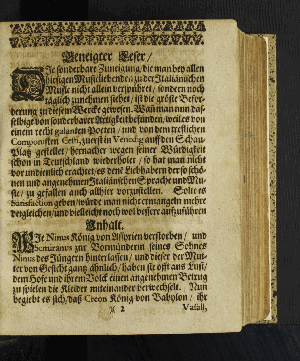 Geneigter Leser/
DIe sonderbare Zuneigung/ die man bey allen
hiesigen Music liebenden zu der Italiänischen
Music nicht allein verspühret/ sondern noch
täglich zunehmen siehet/ ist die gröste Beför-
derung zu diesem Wercke gewesen. Wann man nun das-
selbige von sonderbarer Artigkeit befunden/ weil es von
einem recht galanten Poeten/ und von dem trefflichen
Componisten Cesti, zuerst in Venedig auff den Schau-
Platz gestellet/ hernacher wegen seiner Würdigkeit
schon in Teutschland wiederholet/ so hat man nicht
vor undienlich erachtet/ es denē Liebhabern der so schö-
nen und angenehmen Italiänischen Sprache und Mu-
sic/ zu gefallen auch allhier vorzustellen. Solte es
Satisfaction geben/ würde man nicht ermangeln mehre
dergleichen/ und vielleicht noch wol bessere auffzuführen
Inhalt.
DIe Ninus König von Assyrien verstorben/ und
Semiramis zur Vormünderin seines Sohnes
Ninus des Jüngern hinterlassen/ und dieser der Mut-
ter von Gesicht gang ähnlich/ haben sie offt aus Lust/
dem Hofe und ihrem Volck einen angenehmen Betrug
zu spielen die Kleider miteinander verwechselt. Nun
begiebt es sich/ daß Creon König von Babylon/ ihr
)( 2 Vasall,